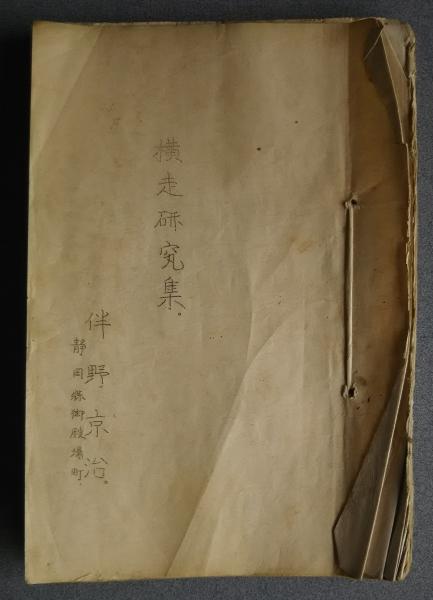 横走研究集。
伴野京治。
静岡縣御殿場町.